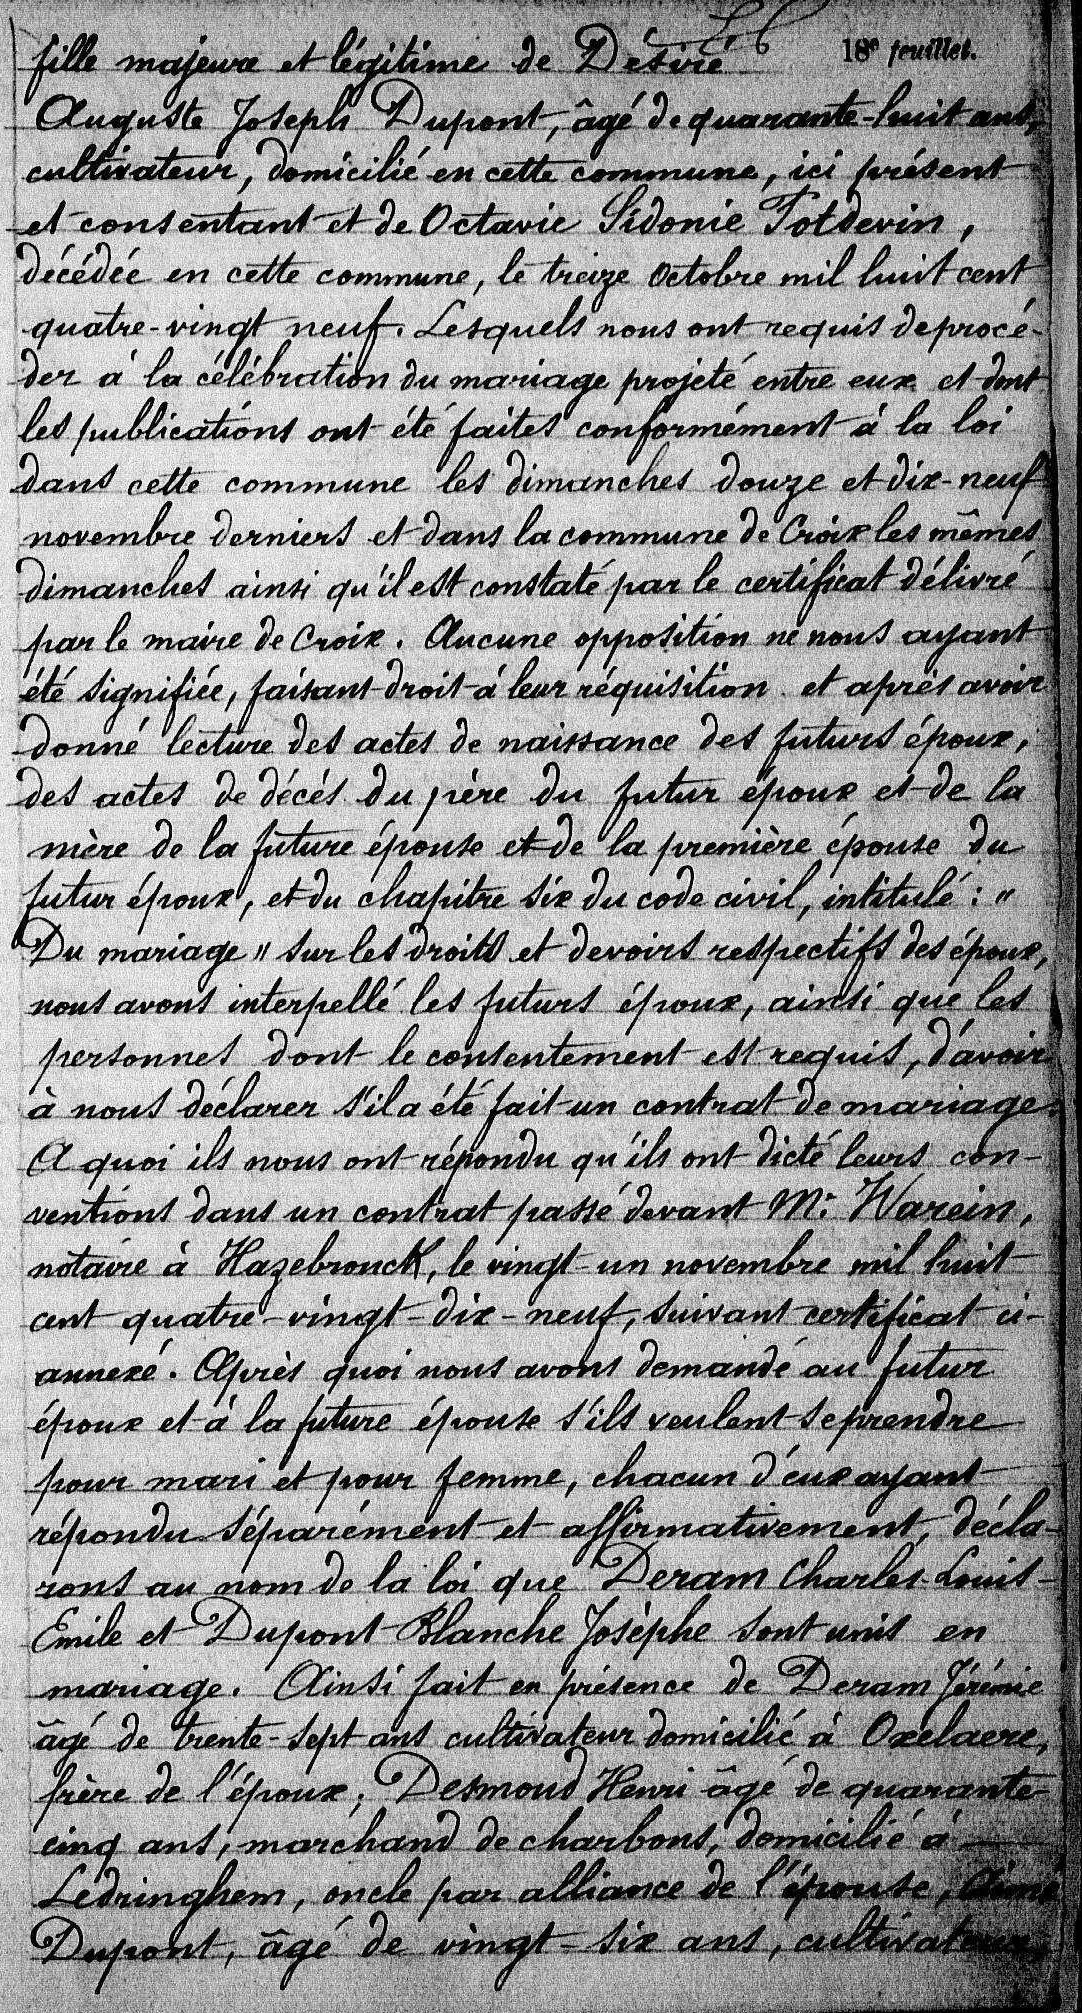 18e feuillet.
fille majeure et légitime de Désiré
Auguste Joseph Dupont, âgé de quarante-huit ans,
cultivateur, domicilié en cette commune, ici présent
et consentant et de Octavie Sidonie Totdevin,
décédée en cette commune, le treize octobre mil huit cent
quatre-vingt neuf. Lesquels nous ont requis de procé-
der à la célébration du mariage projeté entre eux et dont
les publications ont été faites conformément à la loi
dans cette commune les dimanches douze et dix-neuf
novembre derniers et dans la commune de Croix les mêmes
dimanches ainsi qu'il est constaté par le certificat délivré
par le maire de Croix. Aucune opposition ne nous ayant
été signifiée, faisant droit à leur réquisition et après avoir
donné lecture des actes de naissance des futurs époux,
des actes de décès du père du futur époux et de la
mère de la future épouse et de la première épouse du
futur époux, et du chapitre six du code civil, intitulé : "
Du mariage " sur les droits et devoirs respectifs des époux,
nous avons interpellé les futurs époux, ainsi que les
personnes dont le consentement est requis, d'avoir
à nous déclarer s'il a été fait un contrat de mariage.
A quoi ils nous ont répondu qu'ils ont dicté leurs con-
ventions dans un contrat passé devant Mr Warein,
notaire à Hazebrouck, le vingt-un novembre mil huit
cent quatre-vingt-dix-neuf, suivant certificat ci-
annexé. Après quoi nous avons demandé au futur
époux et à la future épouse s'ils veulent se prendre
pour mari et pour femme, chacun d'eux ayant
répondu séparément et affirmativement, décla-
rons au nom de la loi que Deram Charles Louis
Emile et Dupont Blanche Josèphe sont unis en
mariage. Ainsi fait en présence de Deram Jérémie
âgé de trente-sept ans cultivateur domicilié à Oxelaere,
frère de l'époux, Desmoud Henri âgé de quarante
cinq ans, marchand de charbons, domicilié à
Ledringhem, oncle par alliance de l'épouse, Aimé
Dupont, âgé de vingt-six ans, cultivateur,